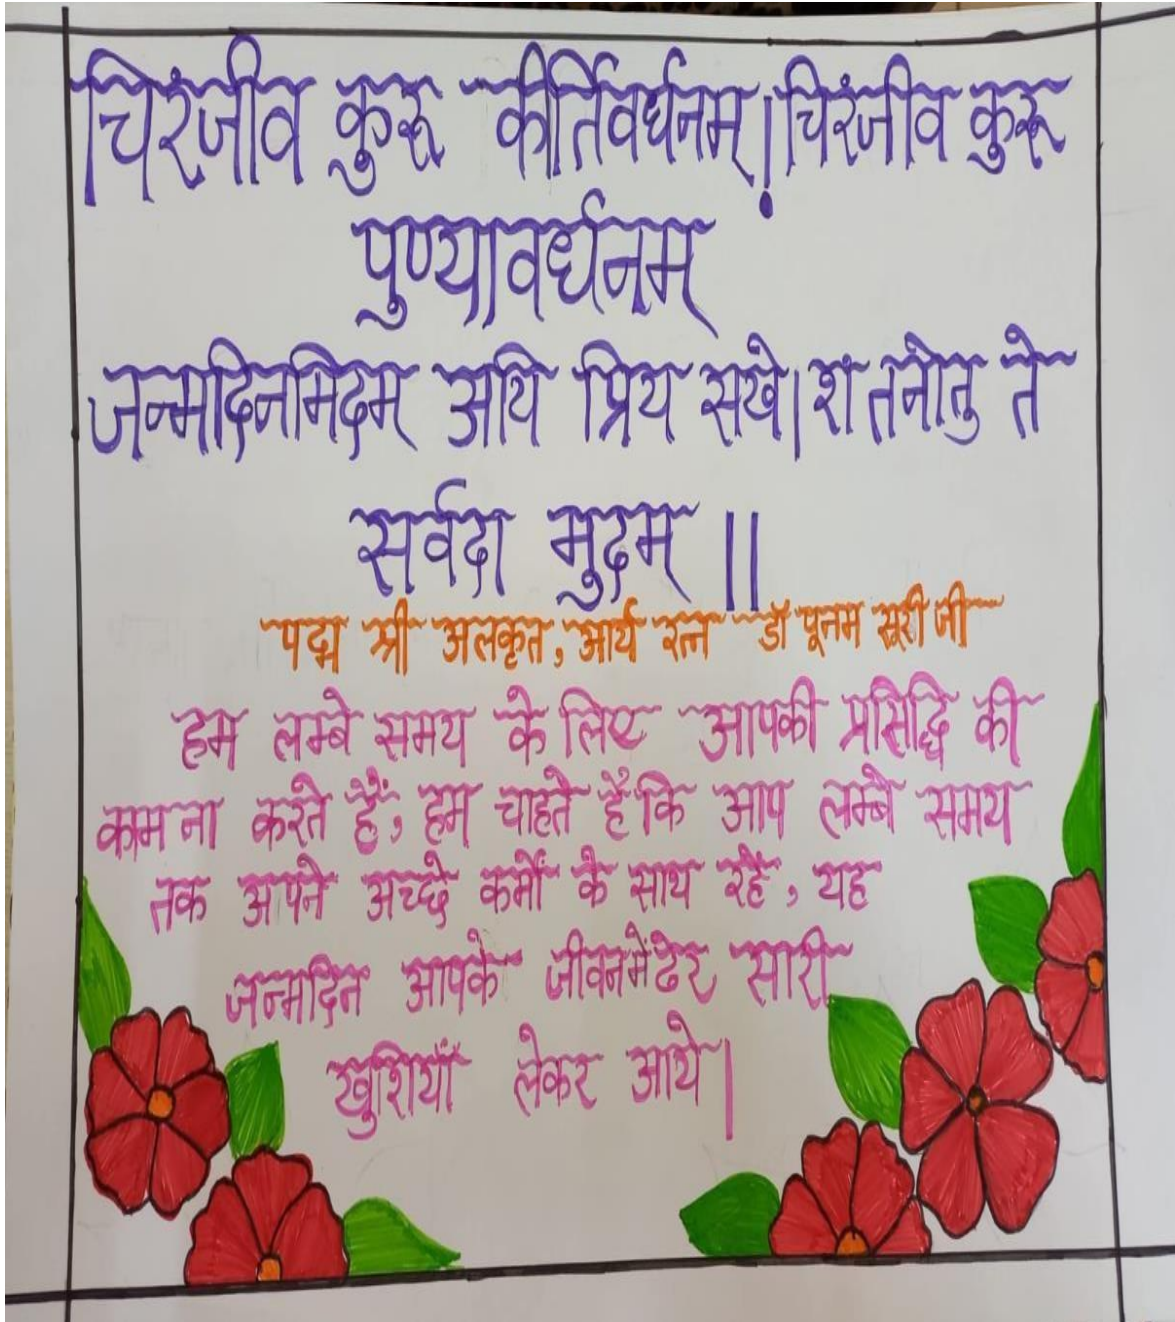 चिरंजीव कुरू कीर्तिवर्धनम्।चिरंजीव कुरू
पुण्यावर्धनम्
जन्मदिनमिदम् अयि प्रिय सखे।श तनोतु ते
सर्वदा मुदम् ॥
पद्म श्री अलकृत, आर्य रत्न डॉ पूनम सूरी जी
हम लम्बे समय के लिए आपकी प्रसिद्धि की
कामना करते हैं, हम चाहते हैं कि आप लम्बे समय
तक अपने अच्छे कर्मों के साथ रहें, यह
जन्मदिन आपके जीवन में ढेर सारी
खुशियाँ लेकर आये।